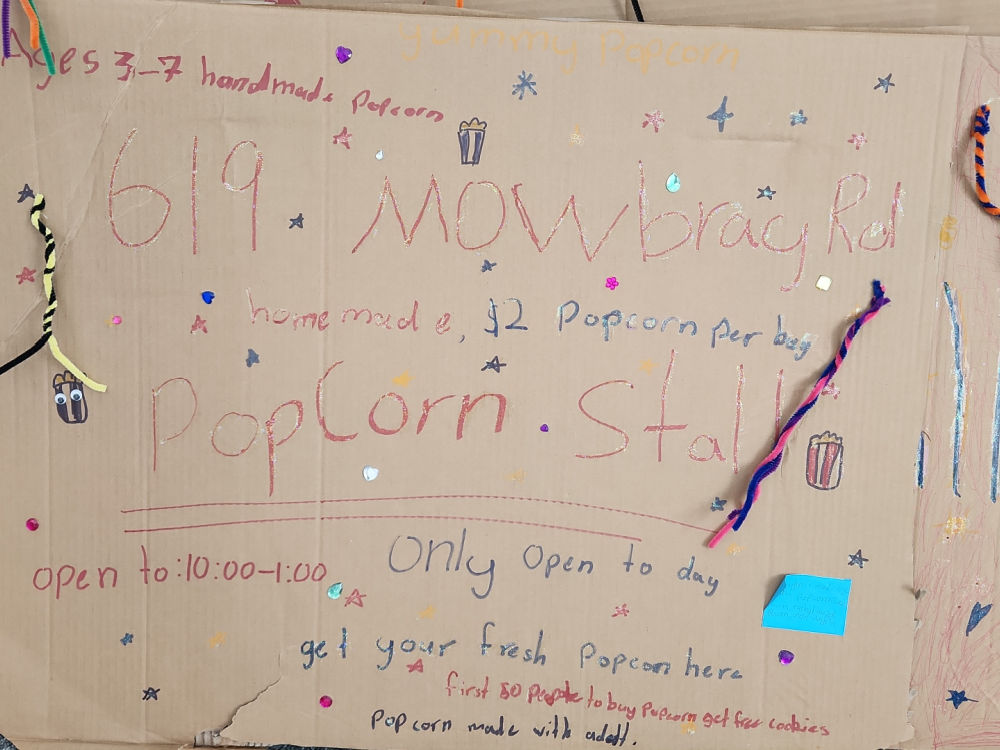 yummy Popcorn
Ages 3-7 handmade popcorn
619 MOWbray Rd
homemade, $2 Popcorn per bag
PopCorn Stall
open to:10:00-1:00
Only Open to day
get your fresh Popcorn here
first 50 people to buy popcorn get free cookies
popcorn made with adult.